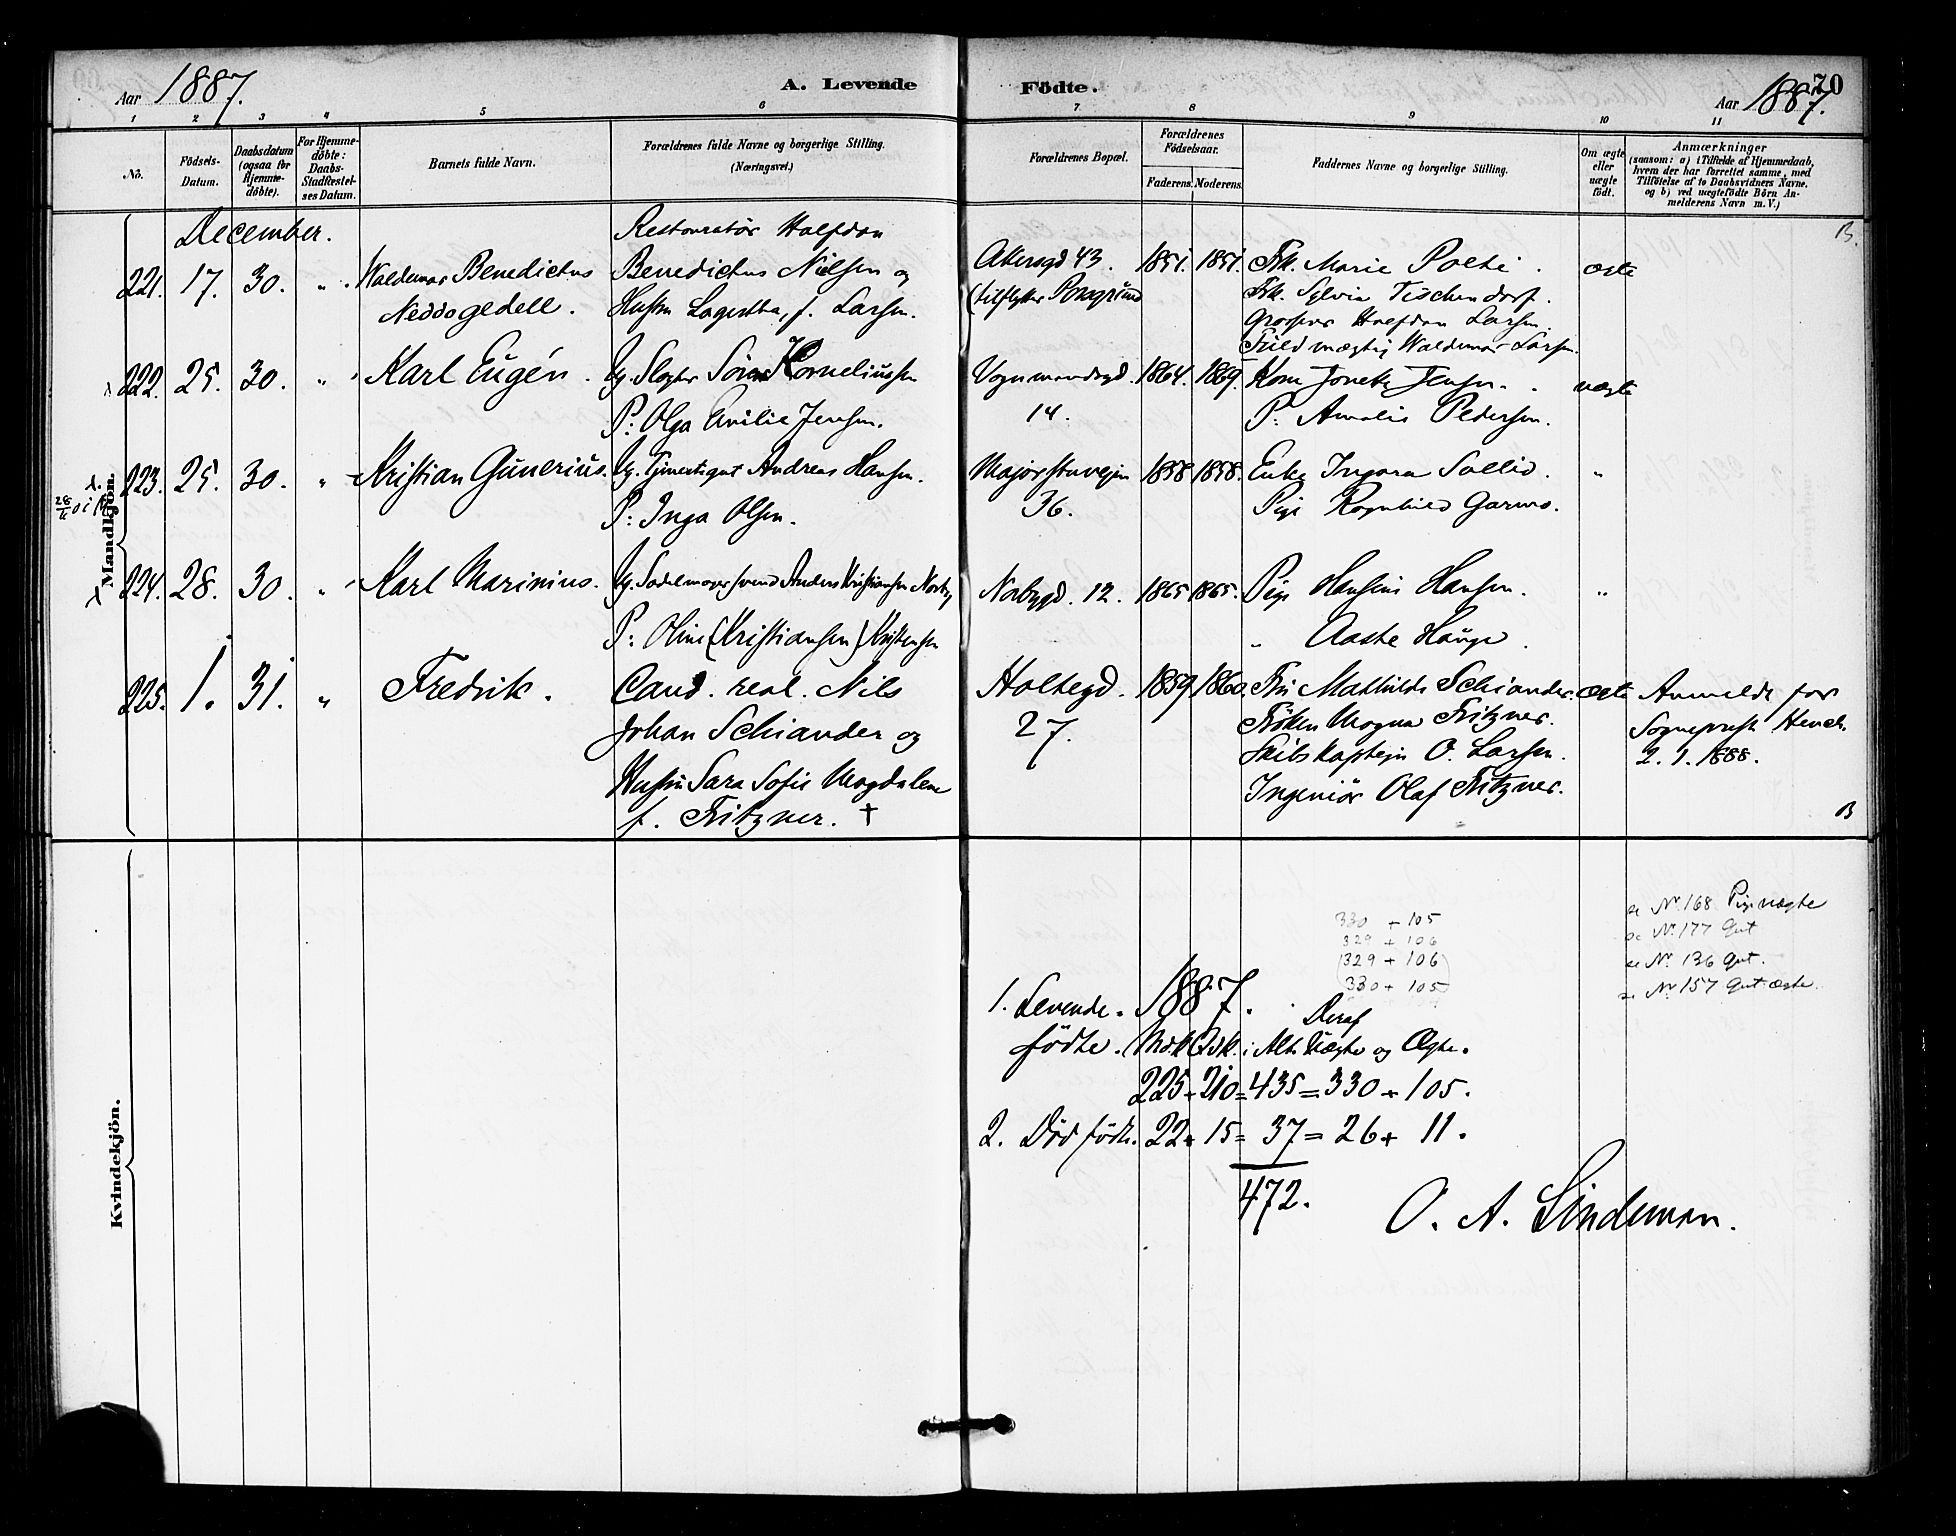 Aar 1887. A. Levende Födte. Aar 1887. 70
1 2 3 4 5 6 7 8 9 10 11
No.
Födsels-Datum.
Daabsdatum (ogsaa for Hjemmedöbte).
For Hjemmedöbte: Daabs-Stadfæstelses Datum.
Barnets fulde Navn.
Forældrenes fulde Navne og borgerlige Stilling. (Næringsvei.)
Forældrenes Bopæl.
Forældrenes Födselsaar.
Faderens. Moderens.
Faddernes Navne og borgerlige Stilling.
Om ægte eller uægte födt.
Anmærkninger
(saasom: a) i Tilfælde af Hjemmedaab,
hvem der har forrettet samme, med
Tilföielse af to Daabsvidners Navne,
og b) ved uægtefödte Börn An-
melderens Navn m. V.)
Mandkjön.
December.
B.
221. 17. 30. " Waldemar Benedictus
Neddogedell.
Restauratör Halfdan
Benedictus Nielsen og
Hustru Lagertha, f. Larsen.
Akersgd 43. 1851. 1851.
Frk. Marie Poleti.
Frk. Sylvia Tischendorf.
Grosserer Halfdan Larsen.
Fuldmægtig Waldemar Larsen.
ægte
222. 25. 30. " Karl Eugén.
Ug. Slagter Sören Korneliussen
P: Olga Emilie Jensen.
Vognmandsgd. 14. 1864. 1869.
Kone Jensen.
P: Amalie Pedersen.
uægte
223. 25. 30. " Kristian Gunerius.
Ug. Tjenestegut Andreas Hansen.
P: Inga Olsen.
Majorstuvejen 36. 1858 1858.
Enke Ingara Sollid.
Pige Ragnhild Garmo.
"
224. 28. 30. " Karl Marinius.
Ug. Sadelmagersvend Anders Kristiansen Norby
P: Oline (Kristiansen) Kristensen
Nabygd. 12. 1865 1865.
Pige Hansine Hansen.
" Aaste Hauge.
"
225. 1. 31. " Fredrik.
Cand. real. Nils
Johan Schiander og
Hustru Sara Sofie Magdalene
f. Fritzner. †
Holtegd. 27. 1859 1860.
Fru Mathilde Schiander.
Fröken Magna Fritzner.
Skibskaptejn O. Larsen.
Ingeniör Olaf Fritzner.
ægte
Anmeldt for
Sogneprest Hench.
2. 1. 1888.
B
Kvindekjön.
330 + 105
329 + 106
(329 + 106)
(330 + 105)
se No. 168 Pige uægte
se No. 177 Gut
se No. 136 Gut.
se No. 157 Gut ægte.
1. Levende 1887. Deraf
födte. Mdk. Qdk. i Alt. Uægte og Ægte.
225 + 210 = 435 = 330 + 105.
2. Död födte. 22 + 15 = 37 = 26 + 11.
472.
O. A. Lindeman.